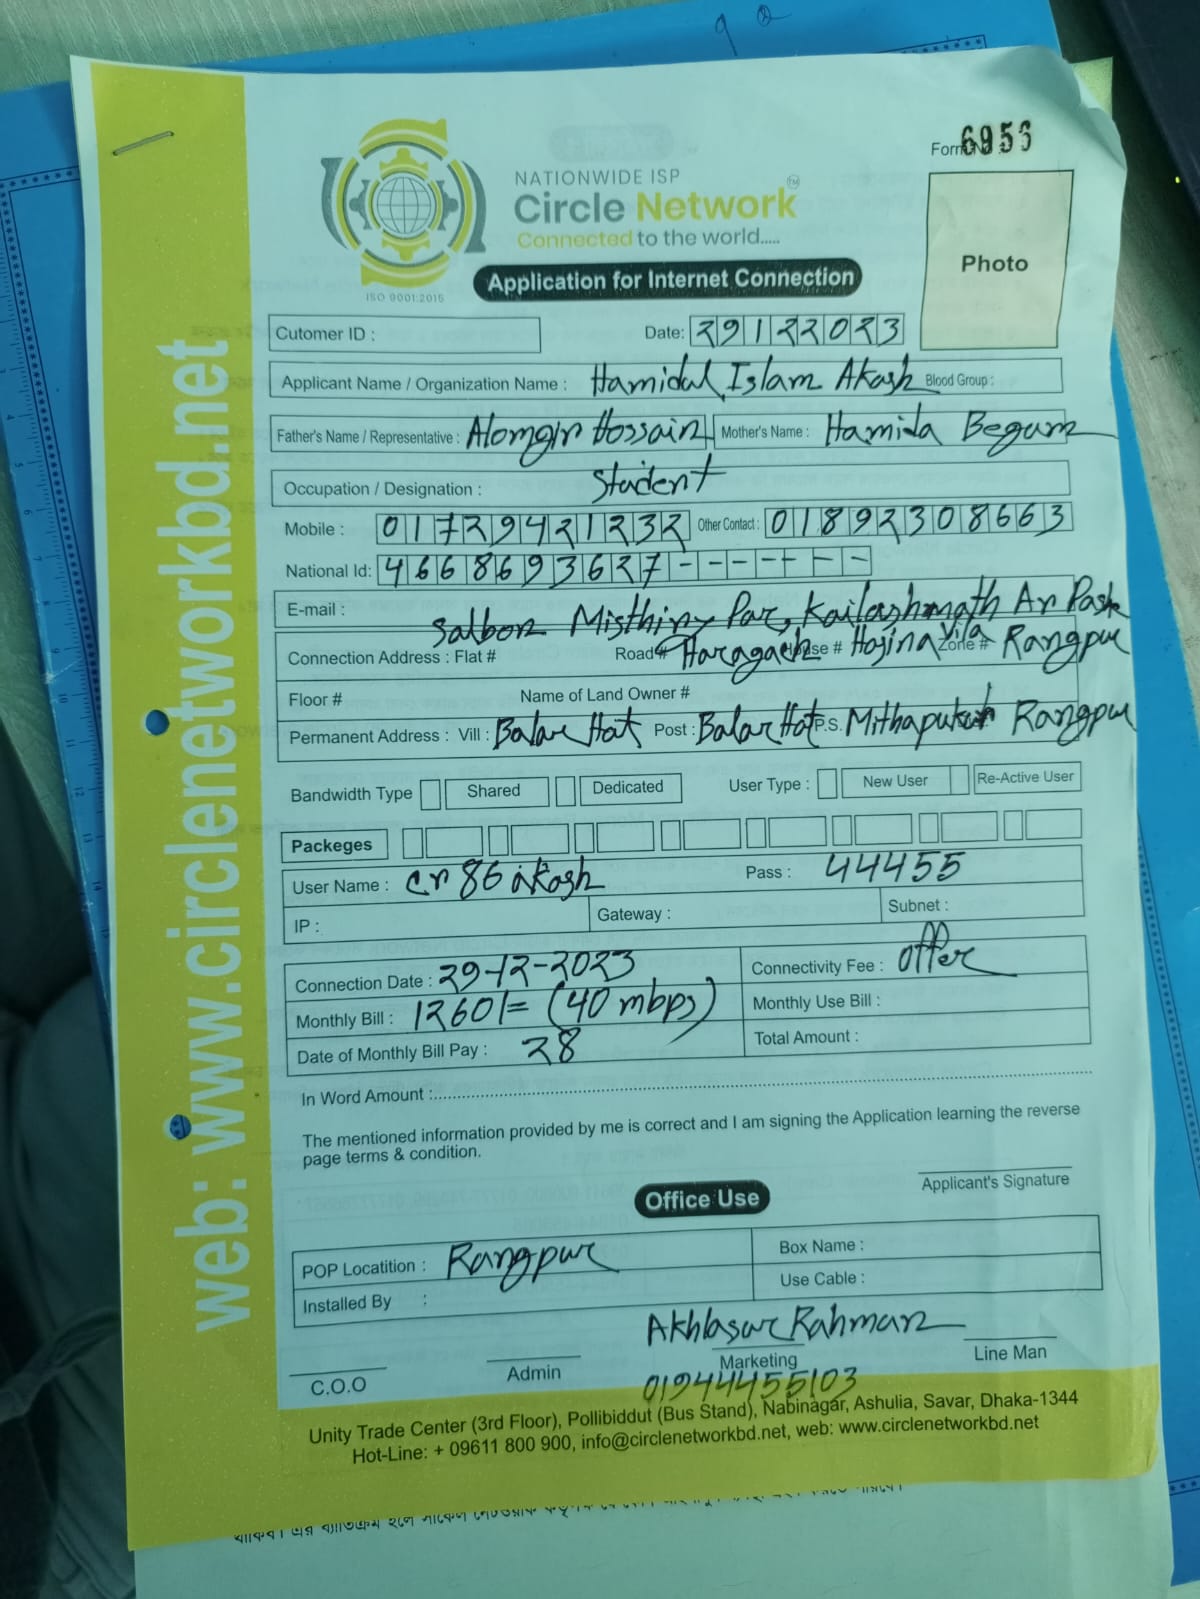 Form 6956
NATIONWIDE ISP
Circle Network TM
Connected to the world.....
ISO 9001:2015
Application for Internet Connection
Photo
Cutomer ID :
Date: 29122023
Applicant Name / Organization Name : Hamidul Islam Akash Blood Group :
Father's Name / Representative : Alomgir Hossain Mother's Name : Hamida Begum
Occupation / Designation : Student
Mobile : 01729421232 Other Contact : 01892308663
National Id: 4668693627 - - - - - - -
E-mail :
Salbon Misthiry Par, Kailashmath Ar Pash
Connection Address : Flat # Road# Haragach House # Hojina Vila Zone # Rangpur
Floor # Name of Land Owner #
Permanent Address : Vill : Balar Hat Post : Balar Hat P.S. Mithapukur Rangpur
Bandwidth Type Shared Dedicated User Type : New User Re-Active User
Packeges
User Name : cn86akash Pass : 44455
IP : Gateway : Subnet :
Connection Date : 29-12-2023 Connectivity Fee : offer
Monthly Bill : 1260/= (40 mbps) Monthly Use Bill :
Date of Monthly Bill Pay : 28 Total Amount :
In Word Amount :
The mentioned information provided by me is correct and I am signing the Application learning the reverse
page terms & condition.
Applicant's Signature
Office Use
POP Locatition : Rangpur Box Name :
Installed By : Use Cable :
Akhlasur Rahman
C.O.O Admin Marketing Line Man
01944455103
Unity Trade Center (3rd Floor), Pollibiddut (Bus Stand), Nabinagar, Ashulia, Savar, Dhaka-1344
Hot-Line: + 09611 800 900, info@circlenetworkbd.net, web: www.circlenetworkbd.net
web: www.circlenetworkbd.net